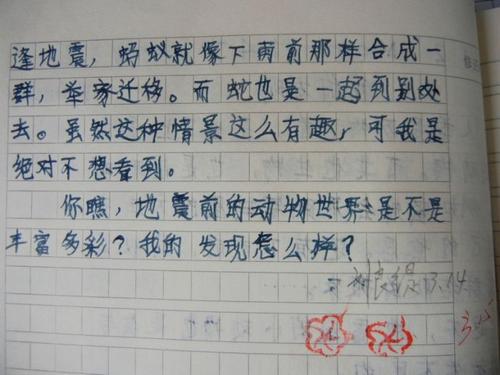 逢地震，蚂蚁就像下雨前那样合成一
群，举家迁移。而蛇也是一起到别处
去。虽然这种情景这么有趣，可我是
绝对不想看到。
你瞧，地震前的动物世界是不是
丰富多彩？我的发现怎么样？